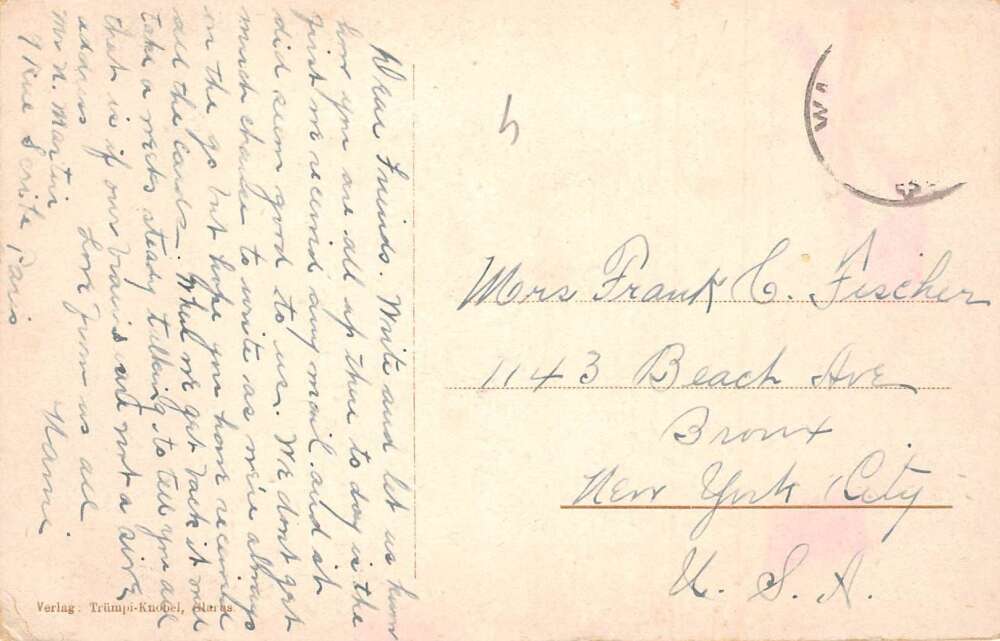 Dear Friends. Write and let us know
how you are all up there to day is the
first we received any mail and it
did seem good to us. We dont get
much chance to write as we're always
on the go but hope you have received
all the cards — When we get back it will
take a weeks steady talking to tell you all
that is if our brains are not a sieve,
address Love from us all
Mr H. Martin Mamie.
9 Rue Scribe, Paris
Verlag: Trümpi-Knobel, Glarus
Mrs Frank C. Fischer
1143 Beach Ave
Bronx
New York City
U. S. A.